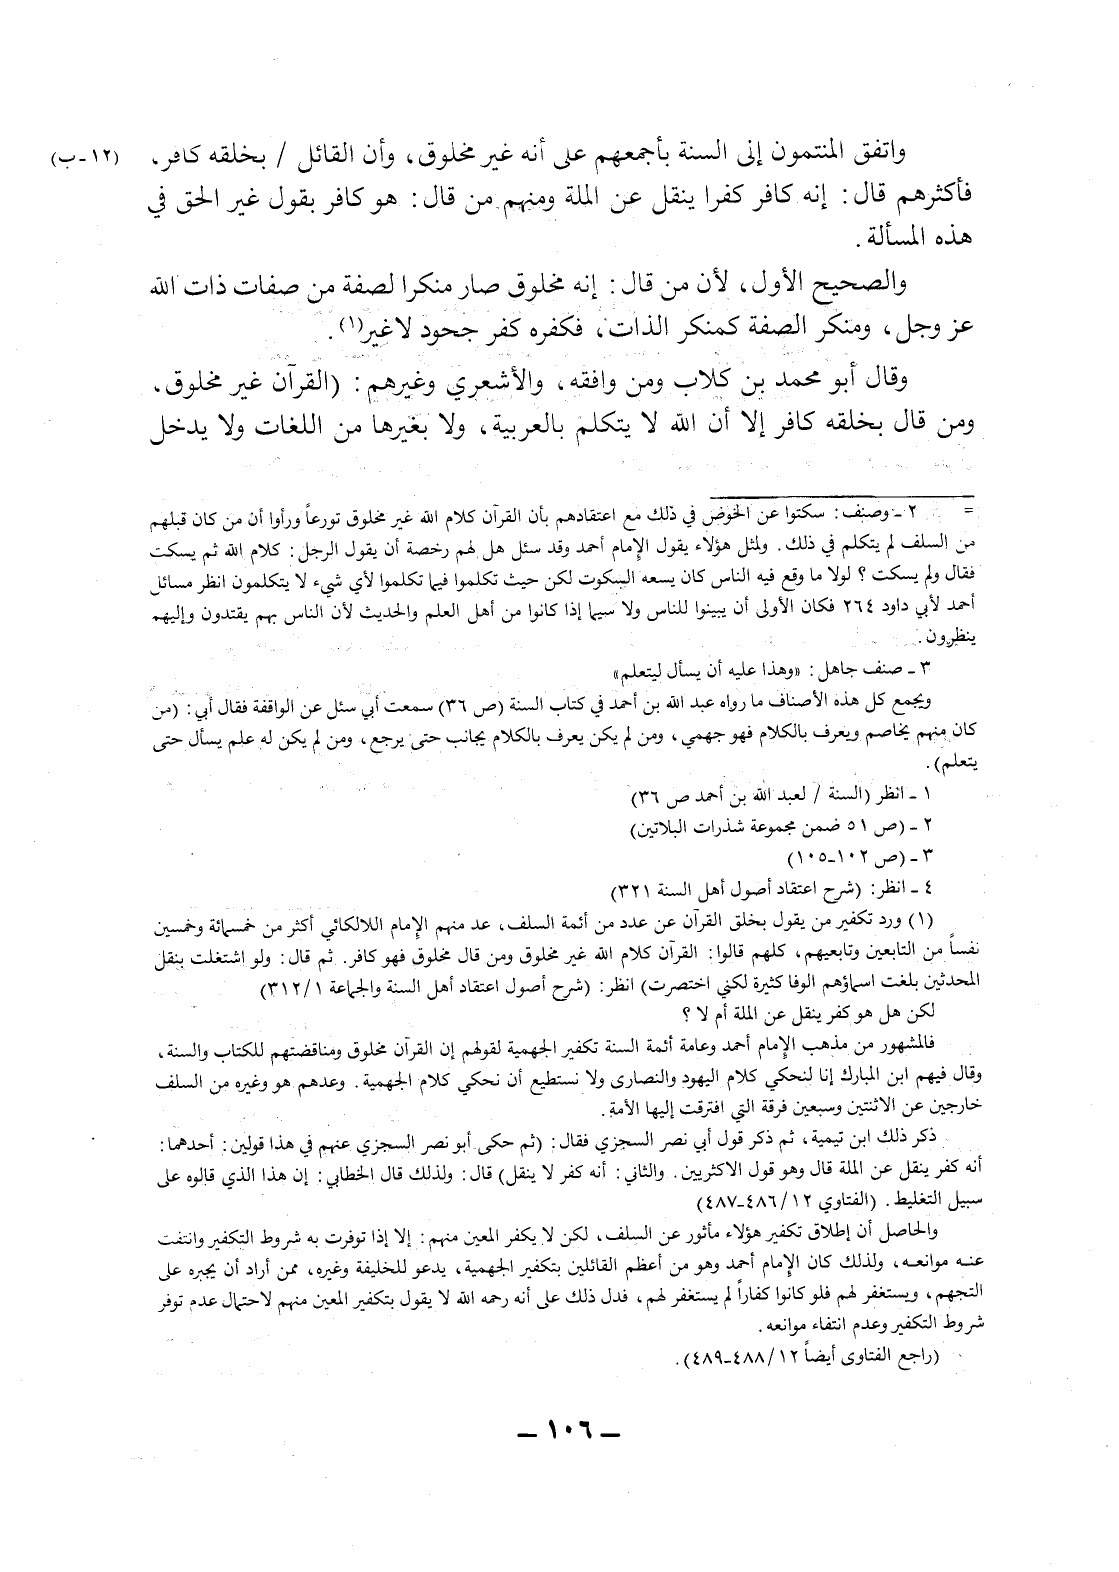 واتفق المنتمون إلى السنة بأجمعهم على أنه غير مخلوق، وأن القائل / بخلقه كافر، (١٢-ب)
فأكثرهم قال: إنه كافر كفرا ينقل عن الملة ومنهم من قال: هو كافر بقول غير الحق في
هذه المسألة.
والصحيح الأول، لأن من قال: إنه مخلوق صار منكرا لصفة من صفات ذات الله
عز وجل، ومنكر الصفة كمنكر الذات، فكفره كفر جحود لا غير(١).
وقال أبو محمد بن كلاب ومن وافقه، والأشعري وغيرهم: (القرآن غير مخلوق،
ومن قال بخلقه كافر إلا أن الله لا يتكلم بالعربية، ولا بغيرها من اللغات ولا يدخل
= ٢ ـ وصنف: سكتوا عن الخوض في ذلك مع اعتقادهم بأن القرآن كلام الله غير مخلوق تورعاً ورأوا أن من كان قبلهم
من السلف لم يتكلم في ذلك. ولمثل هؤلاء يقول الإمام أحمد وقد سئل هل لهم رخصة أن يقول الرجل: كلام الله ثم يسكت
فقال ولم يسكت؟ لولا ما وقع فيه الناس كان يسعه السكوت لكن حيث تكلموا فيما تكلموا لأي شيء لا يتكلمون انظر مسائل
أحمد لأبي داود ٢٦٤ فكان الأولى أن يبينوا للناس ولا سيما إذا كانوا من أهل العلم والحديث لأن الناس بهم يقتدون وإليهم
ينظرون.
٣ ـ صنف جاهل: «وهذا عليه أن يسأل ليتعلم»
ويجمع كل هذه الأصناف ما رواه عبد الله بن أحمد في كتاب السنة (ص ٣٦) سمعت أبي سئل عن الواقفة فقال أبي: (من
كان منهم يخاصم ويعرف بالكلام فهو جهمي، ومن لم يكن يعرف بالكلام يجانب حتى يرجع، ومن لم يكن له علم يسأل حتى
يتعلم).
١ ـ انظر (السنة / لعبد الله بن أحمد ص ٣٦)
٢ ـ (ص ٥١ ضمن مجموعة شذرات البلاتين)
٣ ـ (ص ١٠٢ـ١٠٥)
٤ ـ انظر: (شرح اعتقاد أصول أهل السنة ٣٢١)
(١) ورد تكفير من يقول بخلق القرآن عن عدد من أئمة السلف، عد منهم الإمام اللالكائي أكثر من خمسمائة وخمسين
نفساً من التابعين وتابعيهم، كلهم قالوا: القرآن كلام الله غير مخلوق ومن قال مخلوق فهو كافر. ثم قال: ولو اشتغلت بنقل
المحدثين بلغت اسماؤهم الوفا كثيرة لكني اختصرت) انظر: (شرح أصول اعتقاد أهل السنة والجماعة ٣١٢/١)
لكن هل هو كفر ينقل عن الملة أم لا؟
فالمشهور من مذهب الإمام أحمد وعامة أئمة السنة تكفير الجهمية لقولهم إن القرآن مخلوق ومناقضتهم للكتاب والسنة،
وقال فيهم ابن المبارك إنا لنحكي كلام اليهود والنصارى ولا نستطيع أن نحكي كلام الجهمية. وعدهم هو وغيره من السلف
خارجين عن الاثنتين وسبعين فرقة التي افترقت إليها الأمة.
ذكر ذلك ابن تيمية، ثم ذكر قول أبي نصر السجزي فقال: (ثم حكى أبو نصر السجزي عنهم في هذا قولين: أحدهما:
أنه كفر ينقل عن الملة قال وهو قول الاكثريين. والثاني: أنه كفر لا ينقل) قال: ولذلك قال الخطابي: إن هذا الذي قالوه على
سبيل التغليظ. (الفتاوي ١٢/ ٤٨٦ـ٤٨٧)
والحاصل أن إطلاق تكفير هؤلاء مأثور عن السلف، لكن لا يكفر المعين منهم: إلا إذا توفرت به شروط التكفير وانتفت
عنه موانعه، ولذلك كان الإمام أحمد وهو من أعظم القائلين بتكفير الجهمية، يدعو للخليفة وغيره، ممن أراد أن يجبره على
التجهم، ويستغفر لهم فلو كانوا كفاراً لم يستغفر لهم، فدل ذلك على أنه رحمه الله لا يقول بتكفير المعين منهم لاحتمال عدم توفر
شروط التكفير وعدم انتفاء موانعه.
(راجع الفتاوى أيضاً ١٢/ ٤٨٨ـ٤٨٩).
ـ ١٠٦ ـ